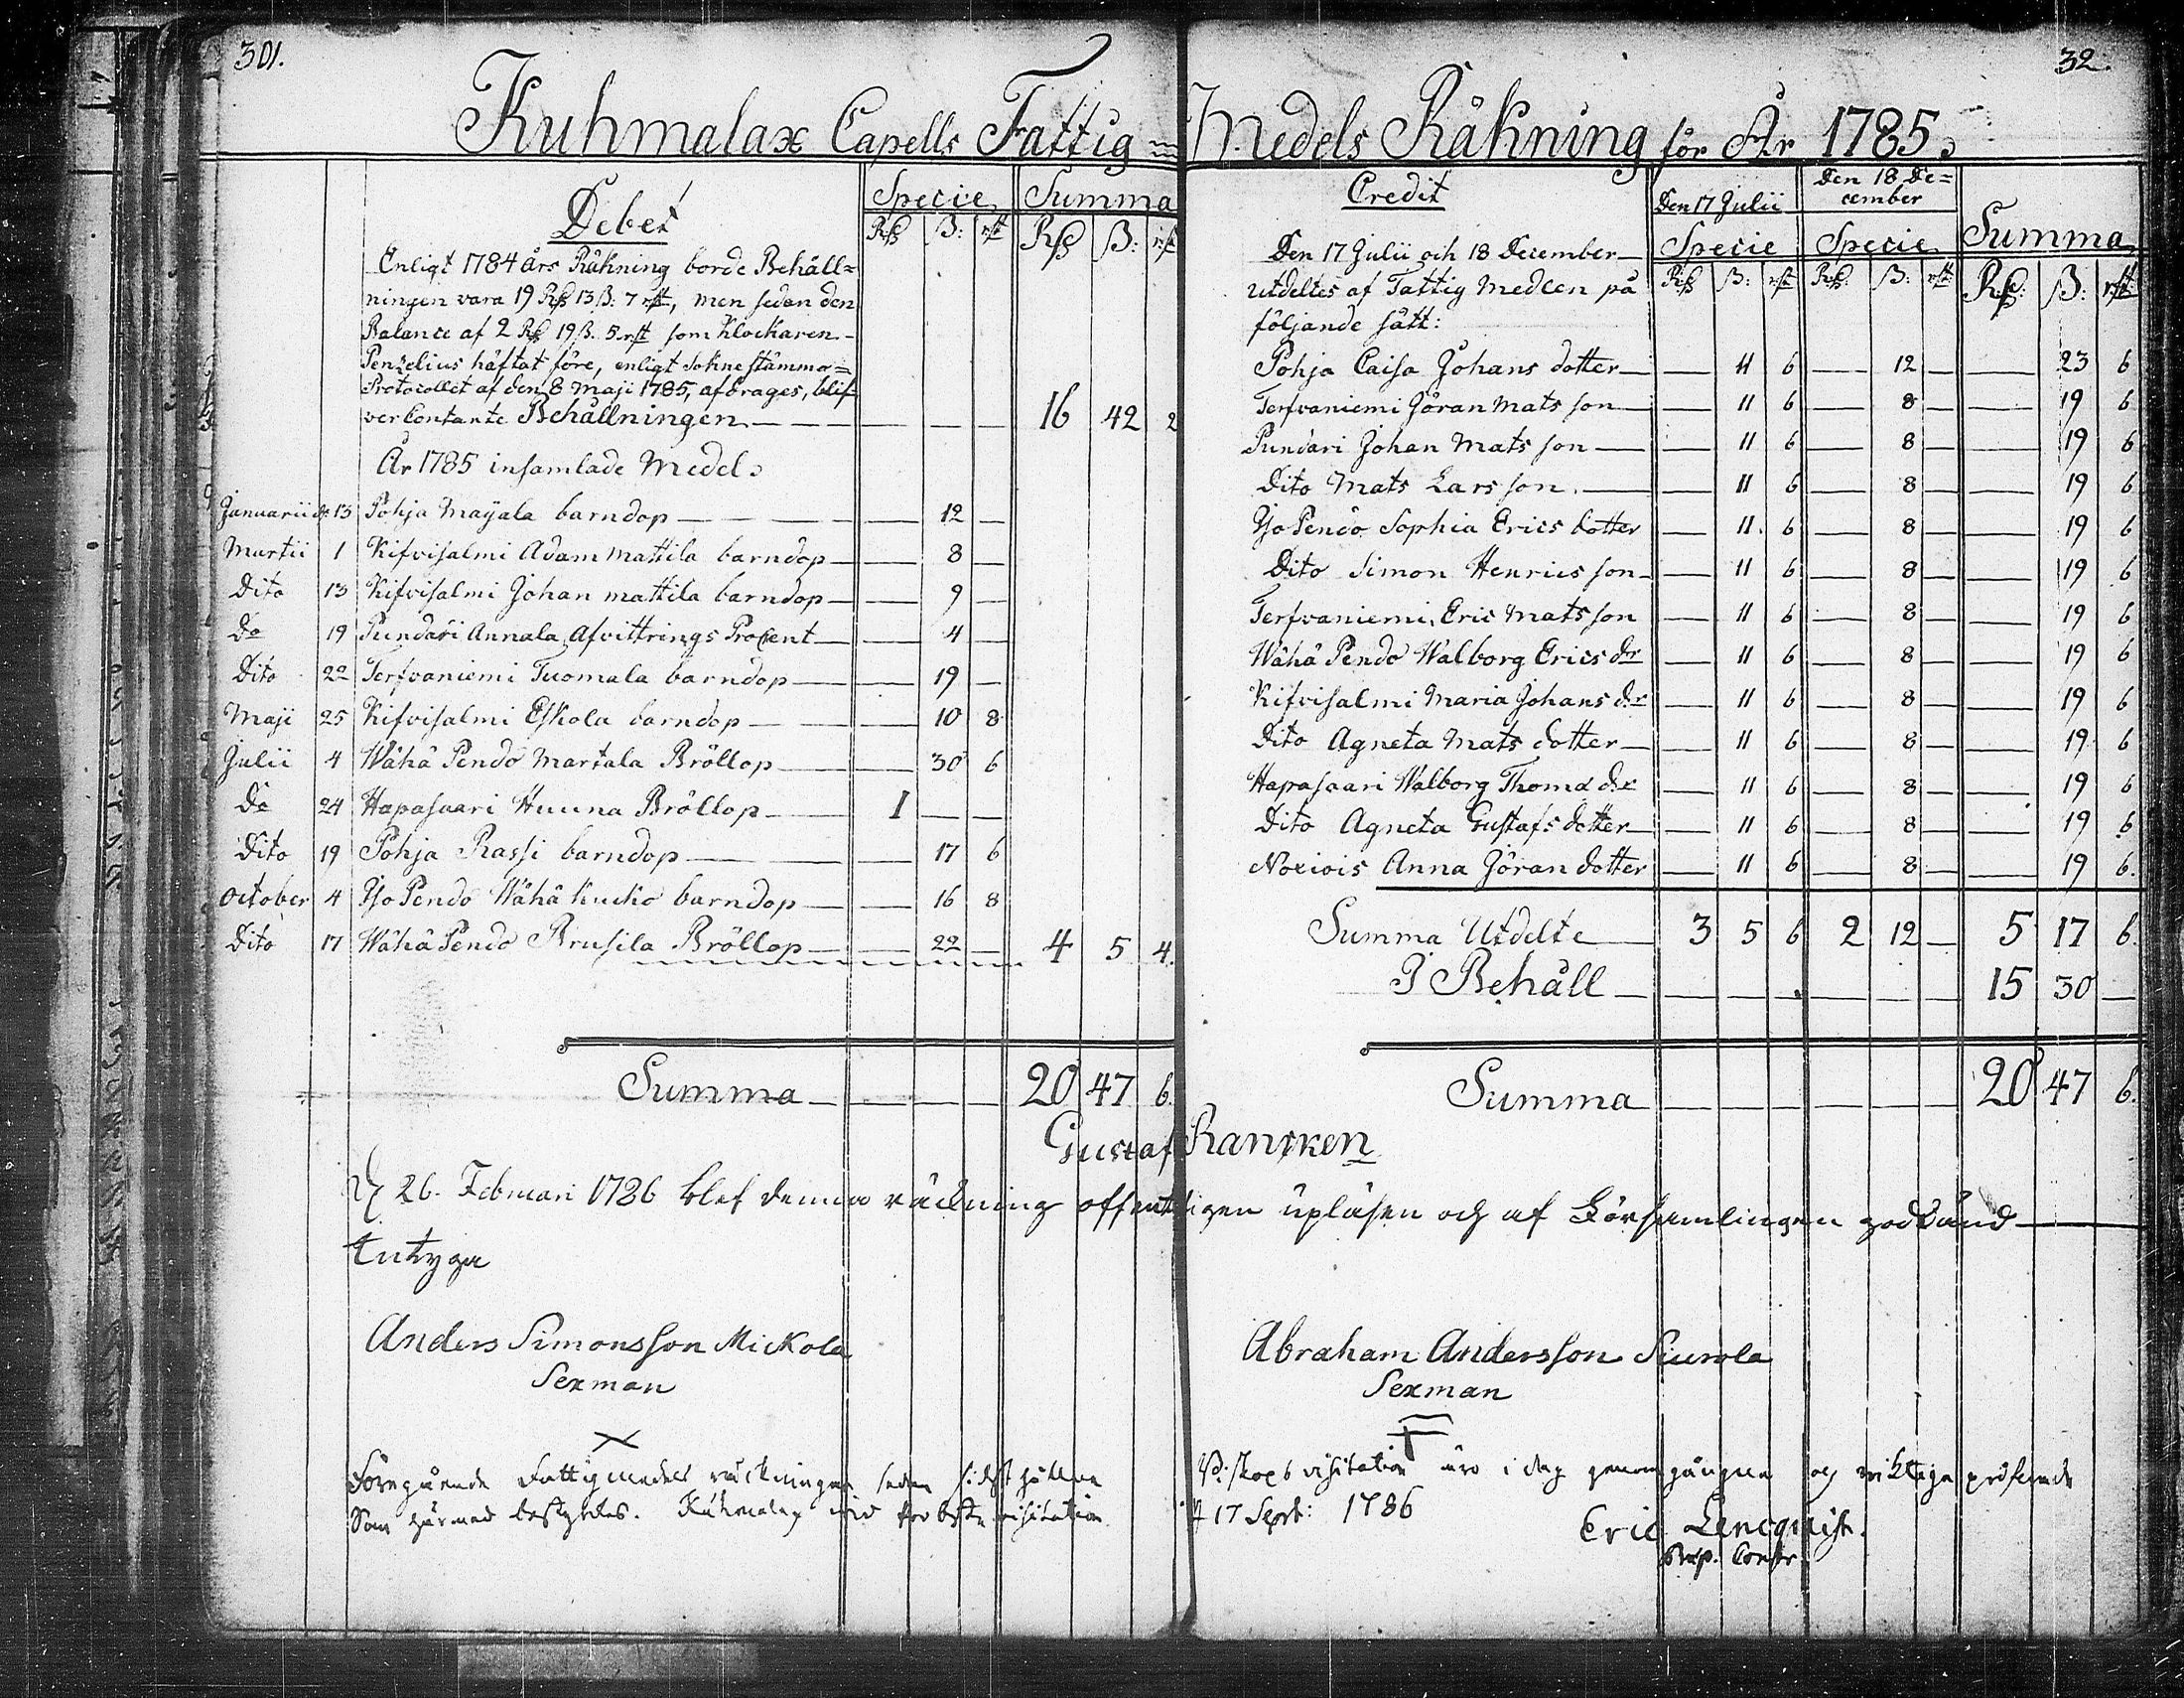 301.
32.
Kuhmalax Capells Fattig = Medels Räkning för År 1785.
Debet
Specie
Summa
Rß ß: rst
Rß ß: rst
Enligt 1784 års Räkning borde Behåll=
ningen vara 19 Rß 13 ß: 7 rst, men sedan den
Balance af 2 Rß 19 ß. 5 rst som Klockaren
Penzelius häftat före, enligt Sokne stämmo=
Protocollet af den 8 Maji 1785, afdrages, blif=
ver Contante Behållningen — — — 16 42 2
År 1785 insamlade Medel.
Januarii d. 13 Pohja Mayala barndop — 12 —
Martii 1 Kifvisalmi Adam Mattila barndop — 8 —
Dito 13 Kifvisalmi Johan Mattila barndop — 9 —
Do 19 Pundari Annala Afvittrings Procent — 4 —
Dito 22 Terfvaniemi Tuomala barndop — 19 —
Maji 25 Kifvisalmi Eskola barndop — 10 8
Julii 4 Wähä Pendo Martala Bröllop — 30 6
Do 24 Hapasaari Huuna Bröllop 1 — —
Dito 19 Pohja Rassi barndop — 17 6
October 4 Yso Pendo Wähä Kucko barndop — 16 8
Dito 17 Wähä Pendo Brusila Bröllop — 22 — 4 5 4.
Summa — — — 20 47 6.
Credit
Den 17 Julii
Den 18 De=
cember
Specie
Specie
Summa
Rß ß: rst Rß: ß: rst: Rß: ß: rst:
Den 17 Julii och 18 December
utdeltes af Fattig Medlen på
följande sätt:
Pohja Caisa Johans dotter — 11 6 — 12 — — 23 6
Terfvaniemi Jöran Mats son — 11 6 — 8 — — 19 6
Pundari Johan Mats son — 11 6 — 8 — — 19 6
Dito Mats Lars son. — 11 6 — 8 — — 19 6
Yso Pendo Sophia Erics dotter — 11. 6 — 8 — — 19 6
Dito Simon Henrics son — 11 6 — 8 — — 19 6
Terfvaniemi Eric Mats son — 11 6 — 8 — — 19 6
Wähä Pendo Walborg Erics dr — 11 6 — 8 — — 19 6
Kifvisalmi Maria Johans dr — 11 6 — 8 — — 19 6
Dito Agneta Mats dotter — 11 6 — 8 — — 19 6
Hapasaari Walborg Thomæ dr — 11 6 — 8 — — 19 6
Dito Agneta Gustafs dotter — 11 6 — 8 — — 19 6
Anna Jöran dotter — 11 6 — 8 — — 19 6.
Summa Utdelte 3 5 6 2 12 — 5 17 6.
I Behåll — — — — — — 15 30 —
Summa — — — — — — 20 47 6.
Gustaf Rancken
D 26. Februari 1786 blef denna räckning offentligen upläsen och af Församlingen godkänd
Anders Simonsson Mickola
Sexman
Abraham Andersson Siurola
Sexman
Föregående Fattigmedels räckningar sedan sidst hållne Biskops visitation äro i dag genomgångne og riktige
Som härmed Kuhmalax visitation d 17 Sept: 1786
Eric Lencquist.